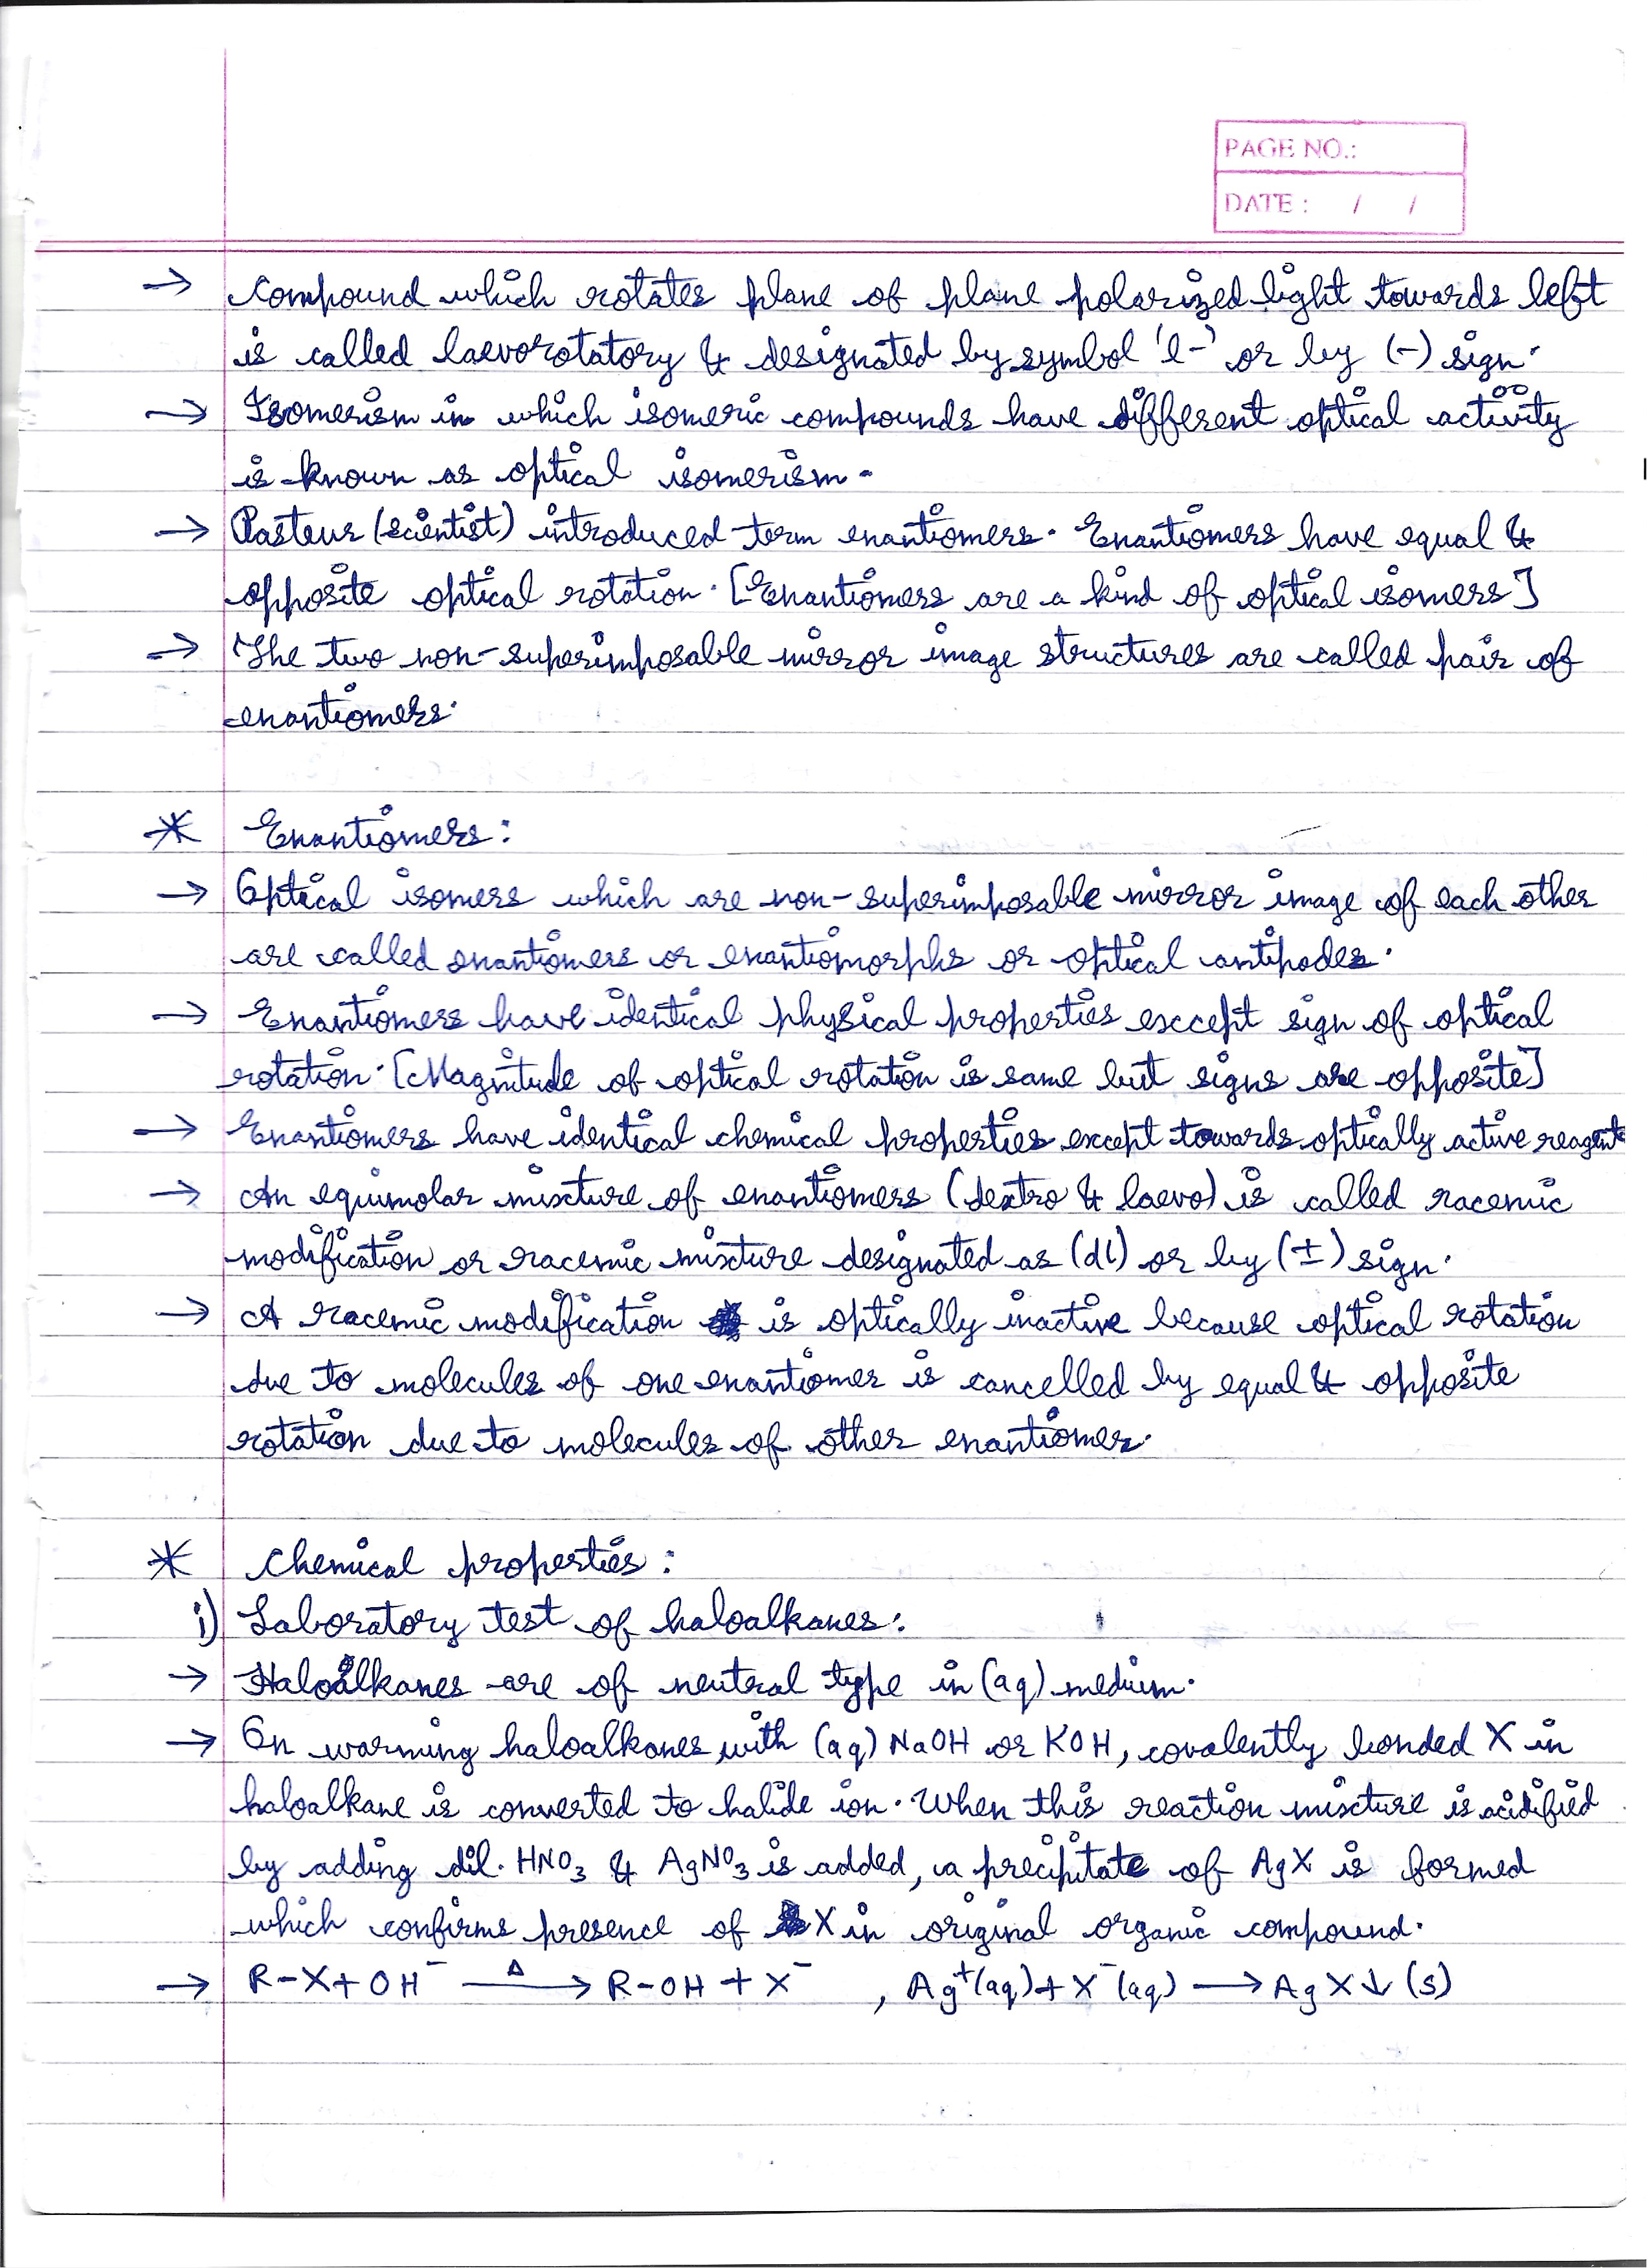 PAGE NO.:
DATE : / /
→ Compound which rotates plane of plane polarized light towards left
is called laevorotatory & designated by symbol 'l-' or by (-) sign.
→ Isomerism in which isomeric compounds have different optical activity
is known as optical isomerism.
→ Pasteur (scientist) introduced term enantiomers. Enantiomers have equal &
opposite optical rotation. [Enantiomers are a kind of optical isomers]
→ The two non-superimposable mirror image structures are called pair of
enantiomers.
* Enantiomers:
→ Optical isomers which are non-superimposable mirror image of each other
are called enantiomers or enantiomorphs or optical antipodes.
→ Enantiomers have identical physical properties except sign of optical
rotation. [Magnitude of optical rotation is same but signs are opposite]
→ Enantiomers have identical chemical properties except towards optically active reagent
→ An equimolar mixture of enantiomers (dextro & laevo) is called racemic
modification or racemic mixture designated as (dl) or by (±) sign.
→ A racemic modification is optically inactive because optical rotation
due to molecules of one enantiomer is cancelled by equal & opposite
rotation due to molecules of other enantiomer.
* Chemical properties:
i) Laboratory test of haloalkanes:
→ Haloalkanes are of neutral type in (aq) medium.
→ On warming haloalkanes with (aq) NaOH or KOH, covalently bonded X in
haloalkane is converted to halide ion. When this reaction mixture is acidified
by adding dil. HNO₃ & AgNO₃ is added, a precipitate of AgX is formed
which confirms presence of X in original organic compound.
→ R-X + OH⁻ —Δ→ R-OH + X⁻ , Ag⁺(aq) + X⁻(aq) → AgX↓ (s)